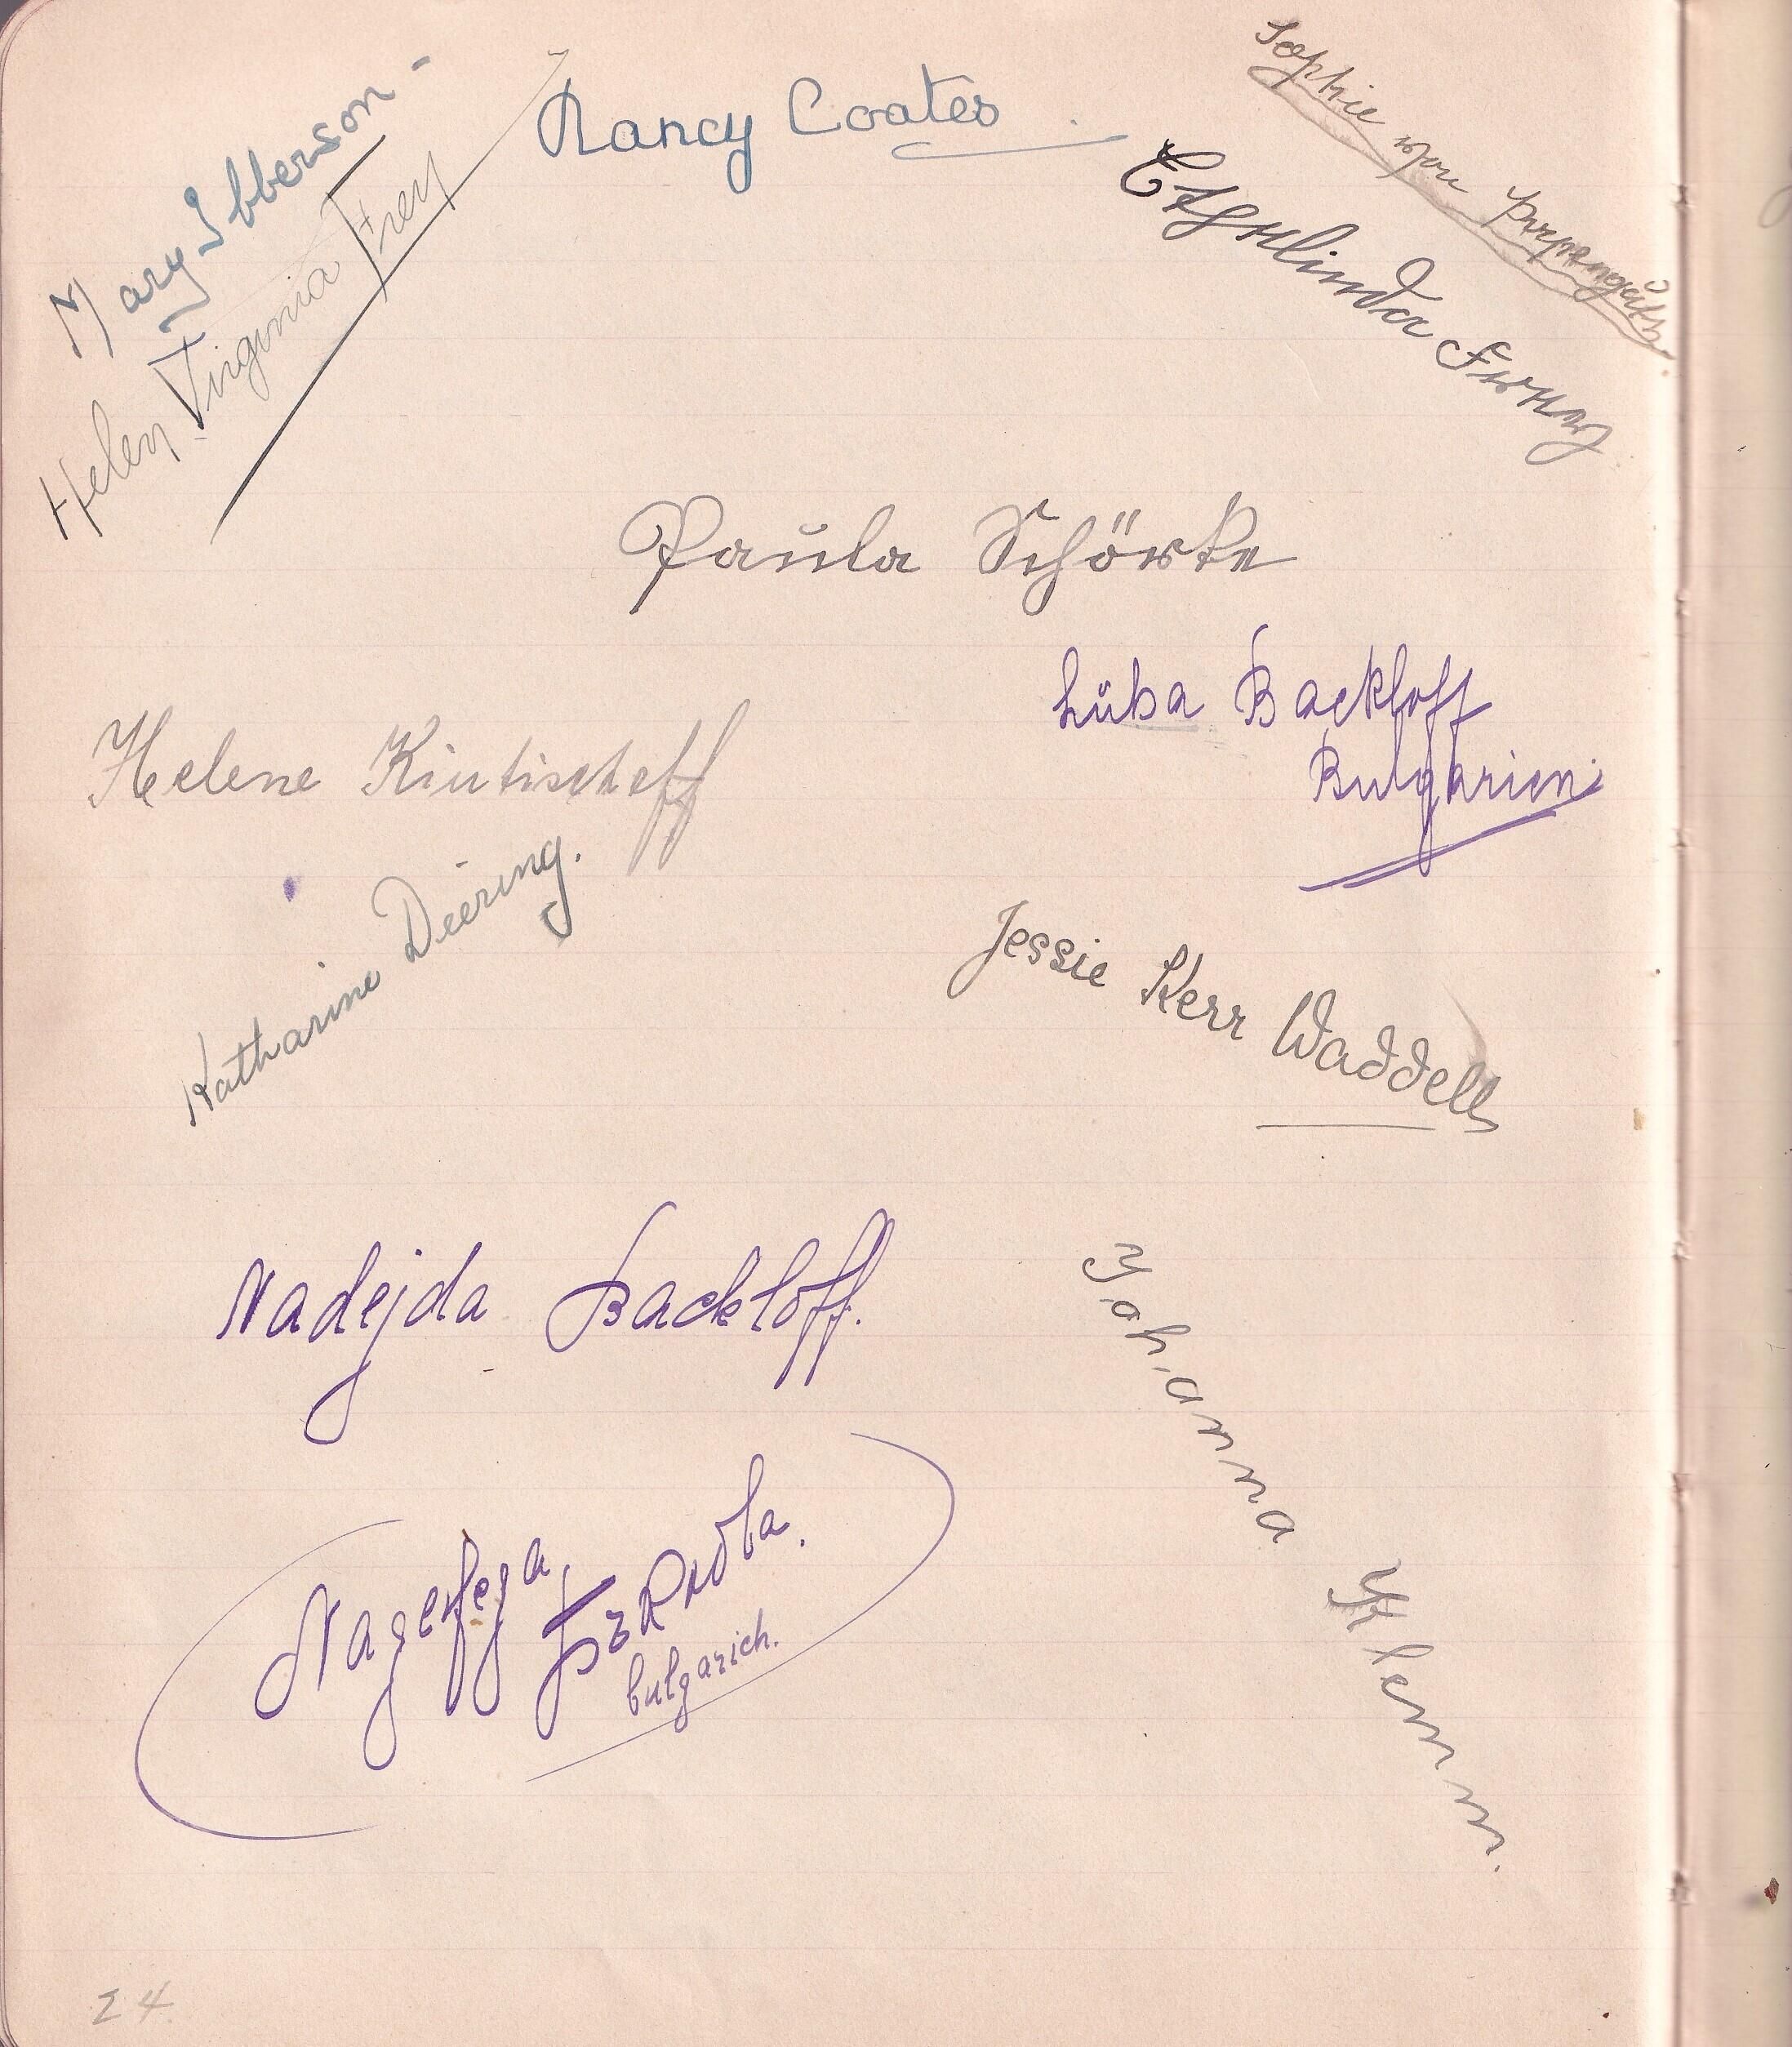 Mary Ibberson -
Helen Virginia Frey
Nancy Coates
Sophie von
Ethelinda
Paula Schörke
Luba Backloff
Bulgarien.
Helene Kiutischeff
Katharine Deering.
Jessie Kerr Waddell
Nadejda Backloff.
Johanna Klemm.
bulgarich.
24